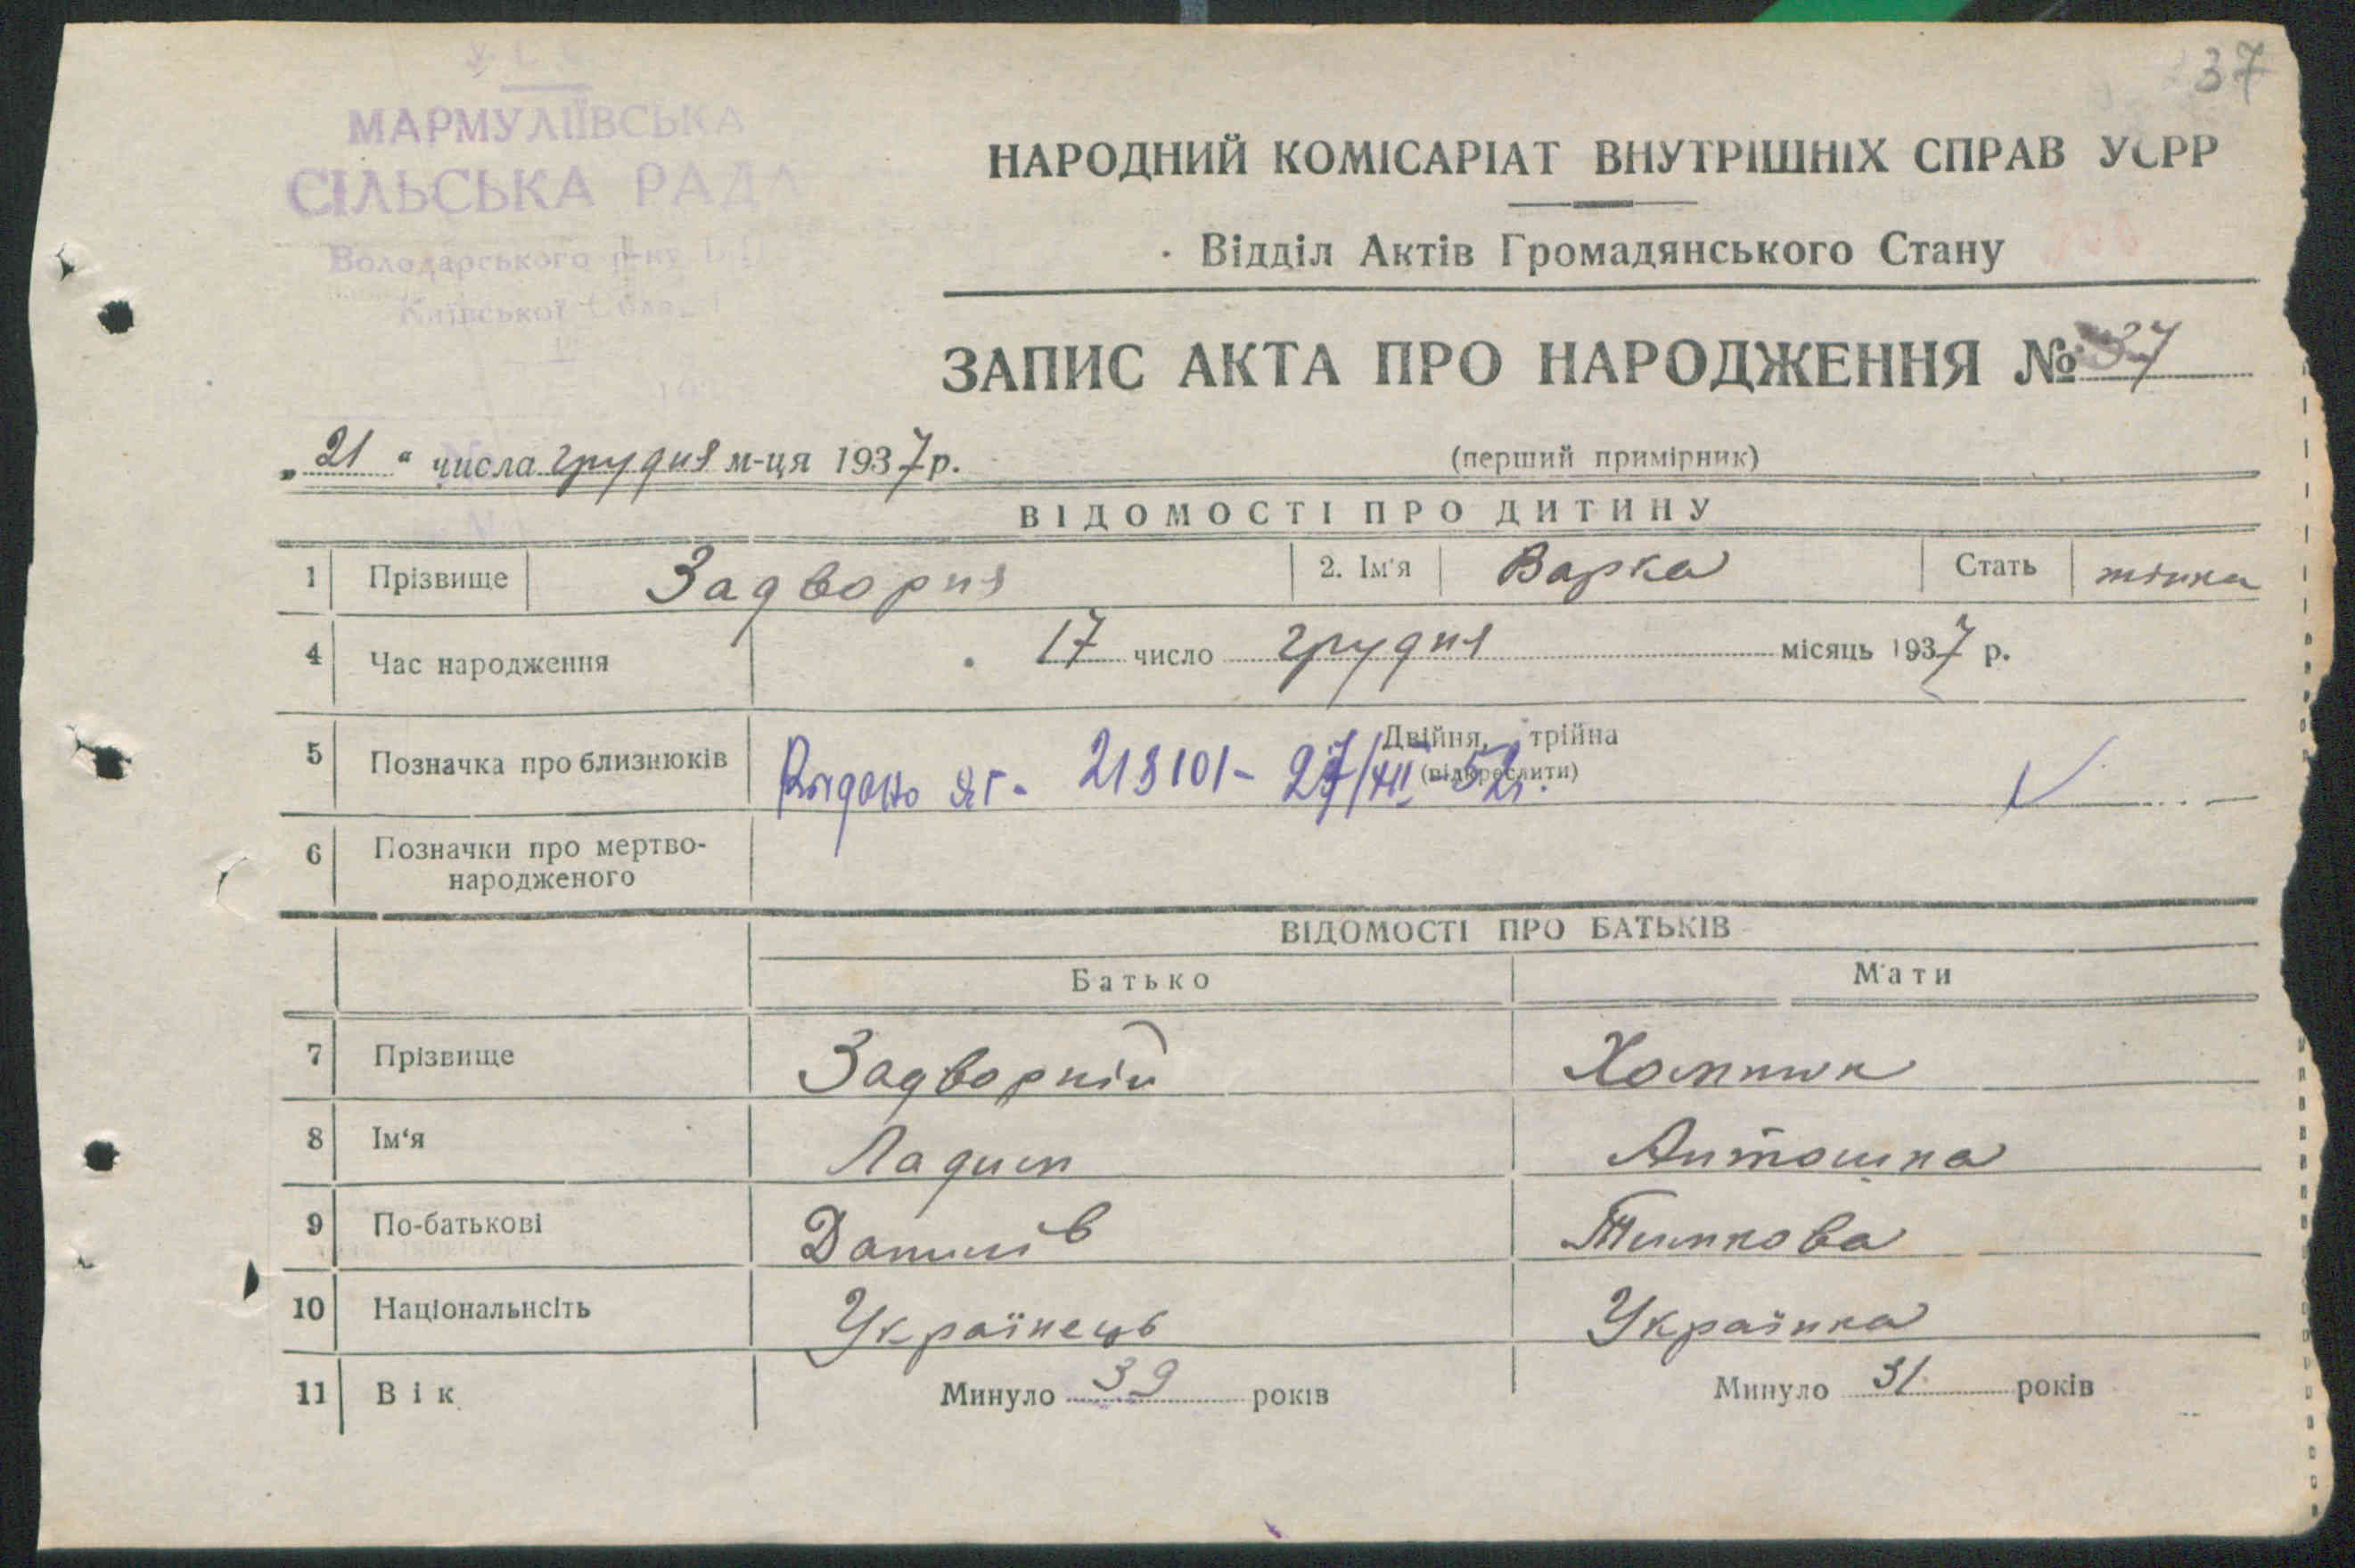 37
МАРМУЛІЇВСЬКА
СІЛЬСЬКА РАДА
Володарського р-ну
Київської
НАРОДНИЙ КОМІСАРІАТ ВНУТРІШНІХ СПРАВ УСРР
Відділ Актів Громадянського Стану
ЗАПИС АКТА ПРО НАРОДЖЕННЯ № 37
„21“ числа грудня м-ця 1937 р.
(перший примірник)
ВІДОМОСТІ ПРО ДИТИНУ
1 Прізвище Задворня 2. Ім'я Варка Стать жінка
4 Час народження 17 число грудня місяць 1937 р.
5 Позначка про близнюків Двійня, трійна
(підкреслити)
213101 - 27/XII 52г.
6 Позначки про мертво-
народженого
ВІДОМОСТІ ПРО БАТЬКІВ
Батько Мати
7 Прізвище Задворній Хомчик
8 Ім‘я Ладим Антошка
9 По-батькові Данилів Тимкова
10 Національнсіть Українець Українка
11 Вік Минуло 39 років Минуло 31 років